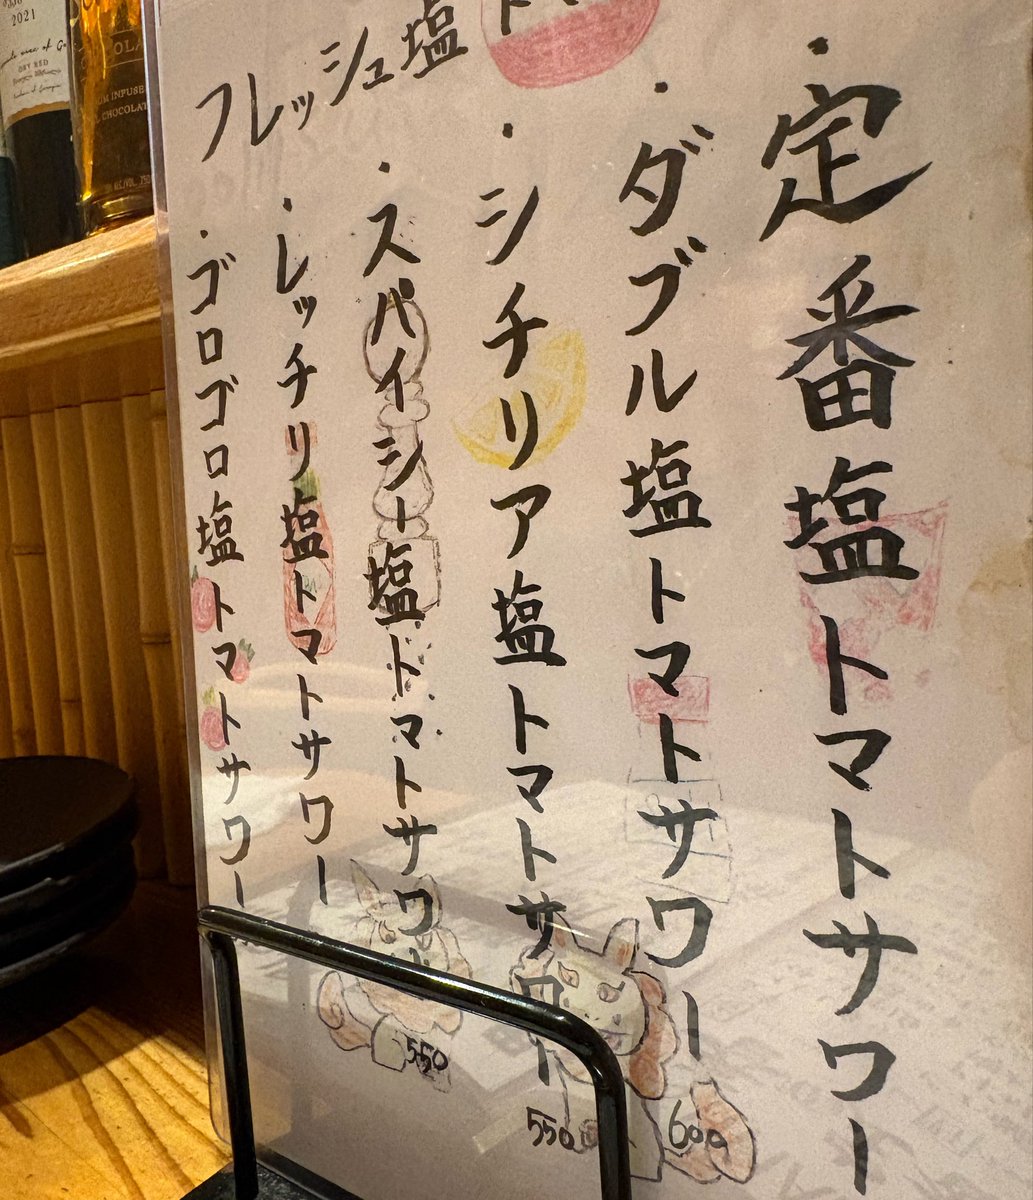 フレッシュ塩トマ
・定番塩トマトサワー
・ダブル塩トマトサワー
600
・シチリア塩トマトサワー
550
・スパイシー塩トマトサワー
550
・レッチリ塩トマトサワー
・ゴロゴロ塩トマトサワー
2021
DRY RED
INFUSE
CHOCOLAT